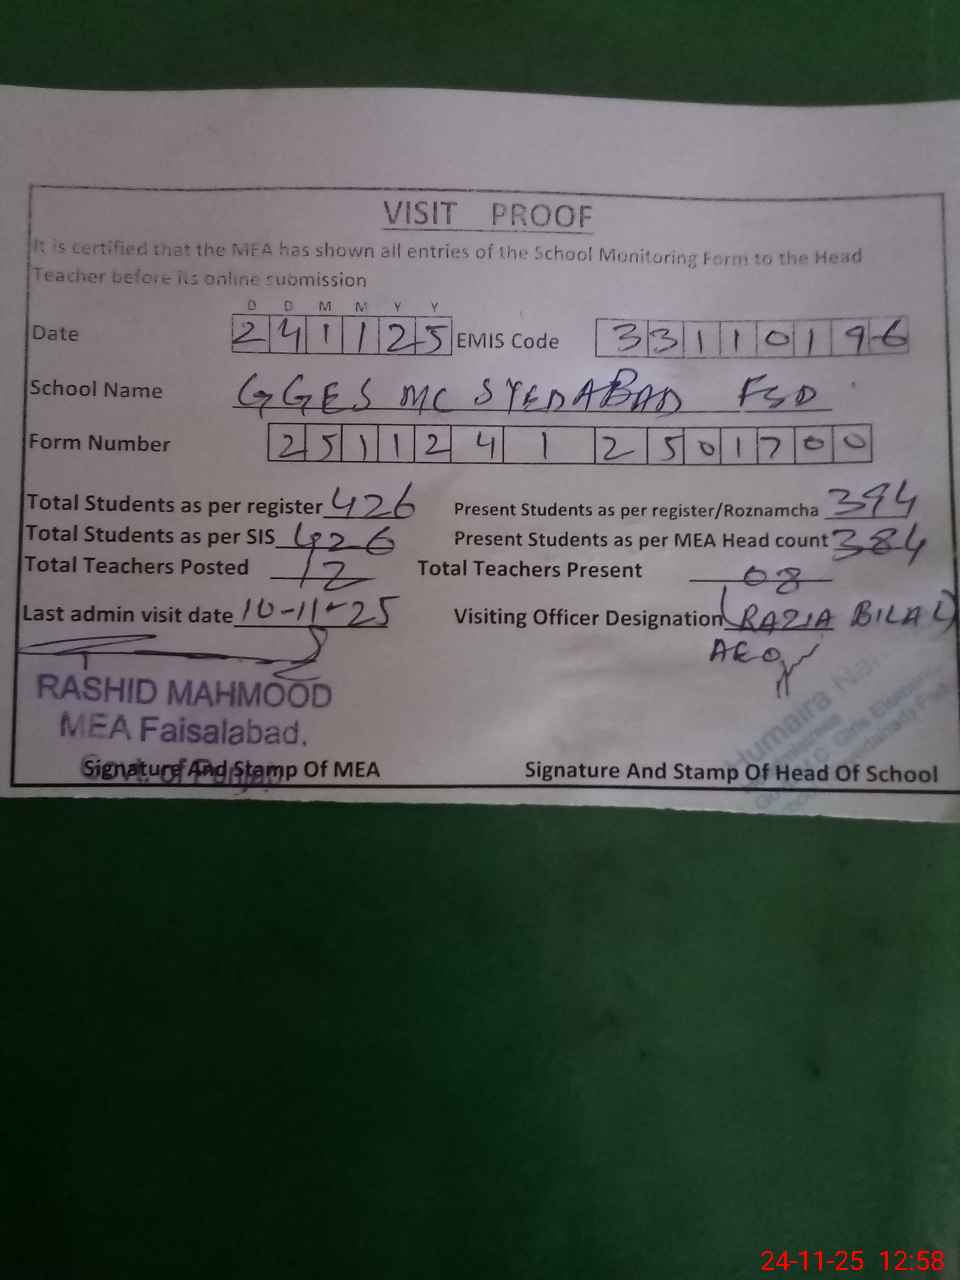 VISIT PROOF
It is certified that the MEA has shown all entries of the School Monitoring Form to the Head
Teacher before its online submission
D D M M Y Y
Date 241125 EMIS Code 33110196
School Name GGES MC SYEDABAD FSD
Form Number 25112412501700
Total Students as per register 426 Present Students as per register/Roznamcha 394
Total Students as per SIS 426 Present Students as per MEA Head count 384
Total Teachers Posted 12 Total Teachers Present 08
Last admin visit date 10-11-25 Visiting Officer Designation (RAZIA BILAL)
AEO
RASHID MAHMOOD
MEA Faisalabad.
Govt. of Punjab
Humaira
Signature And Stamp Of MEA Signature And Stamp Of Head Of School
24-11-25 12:58